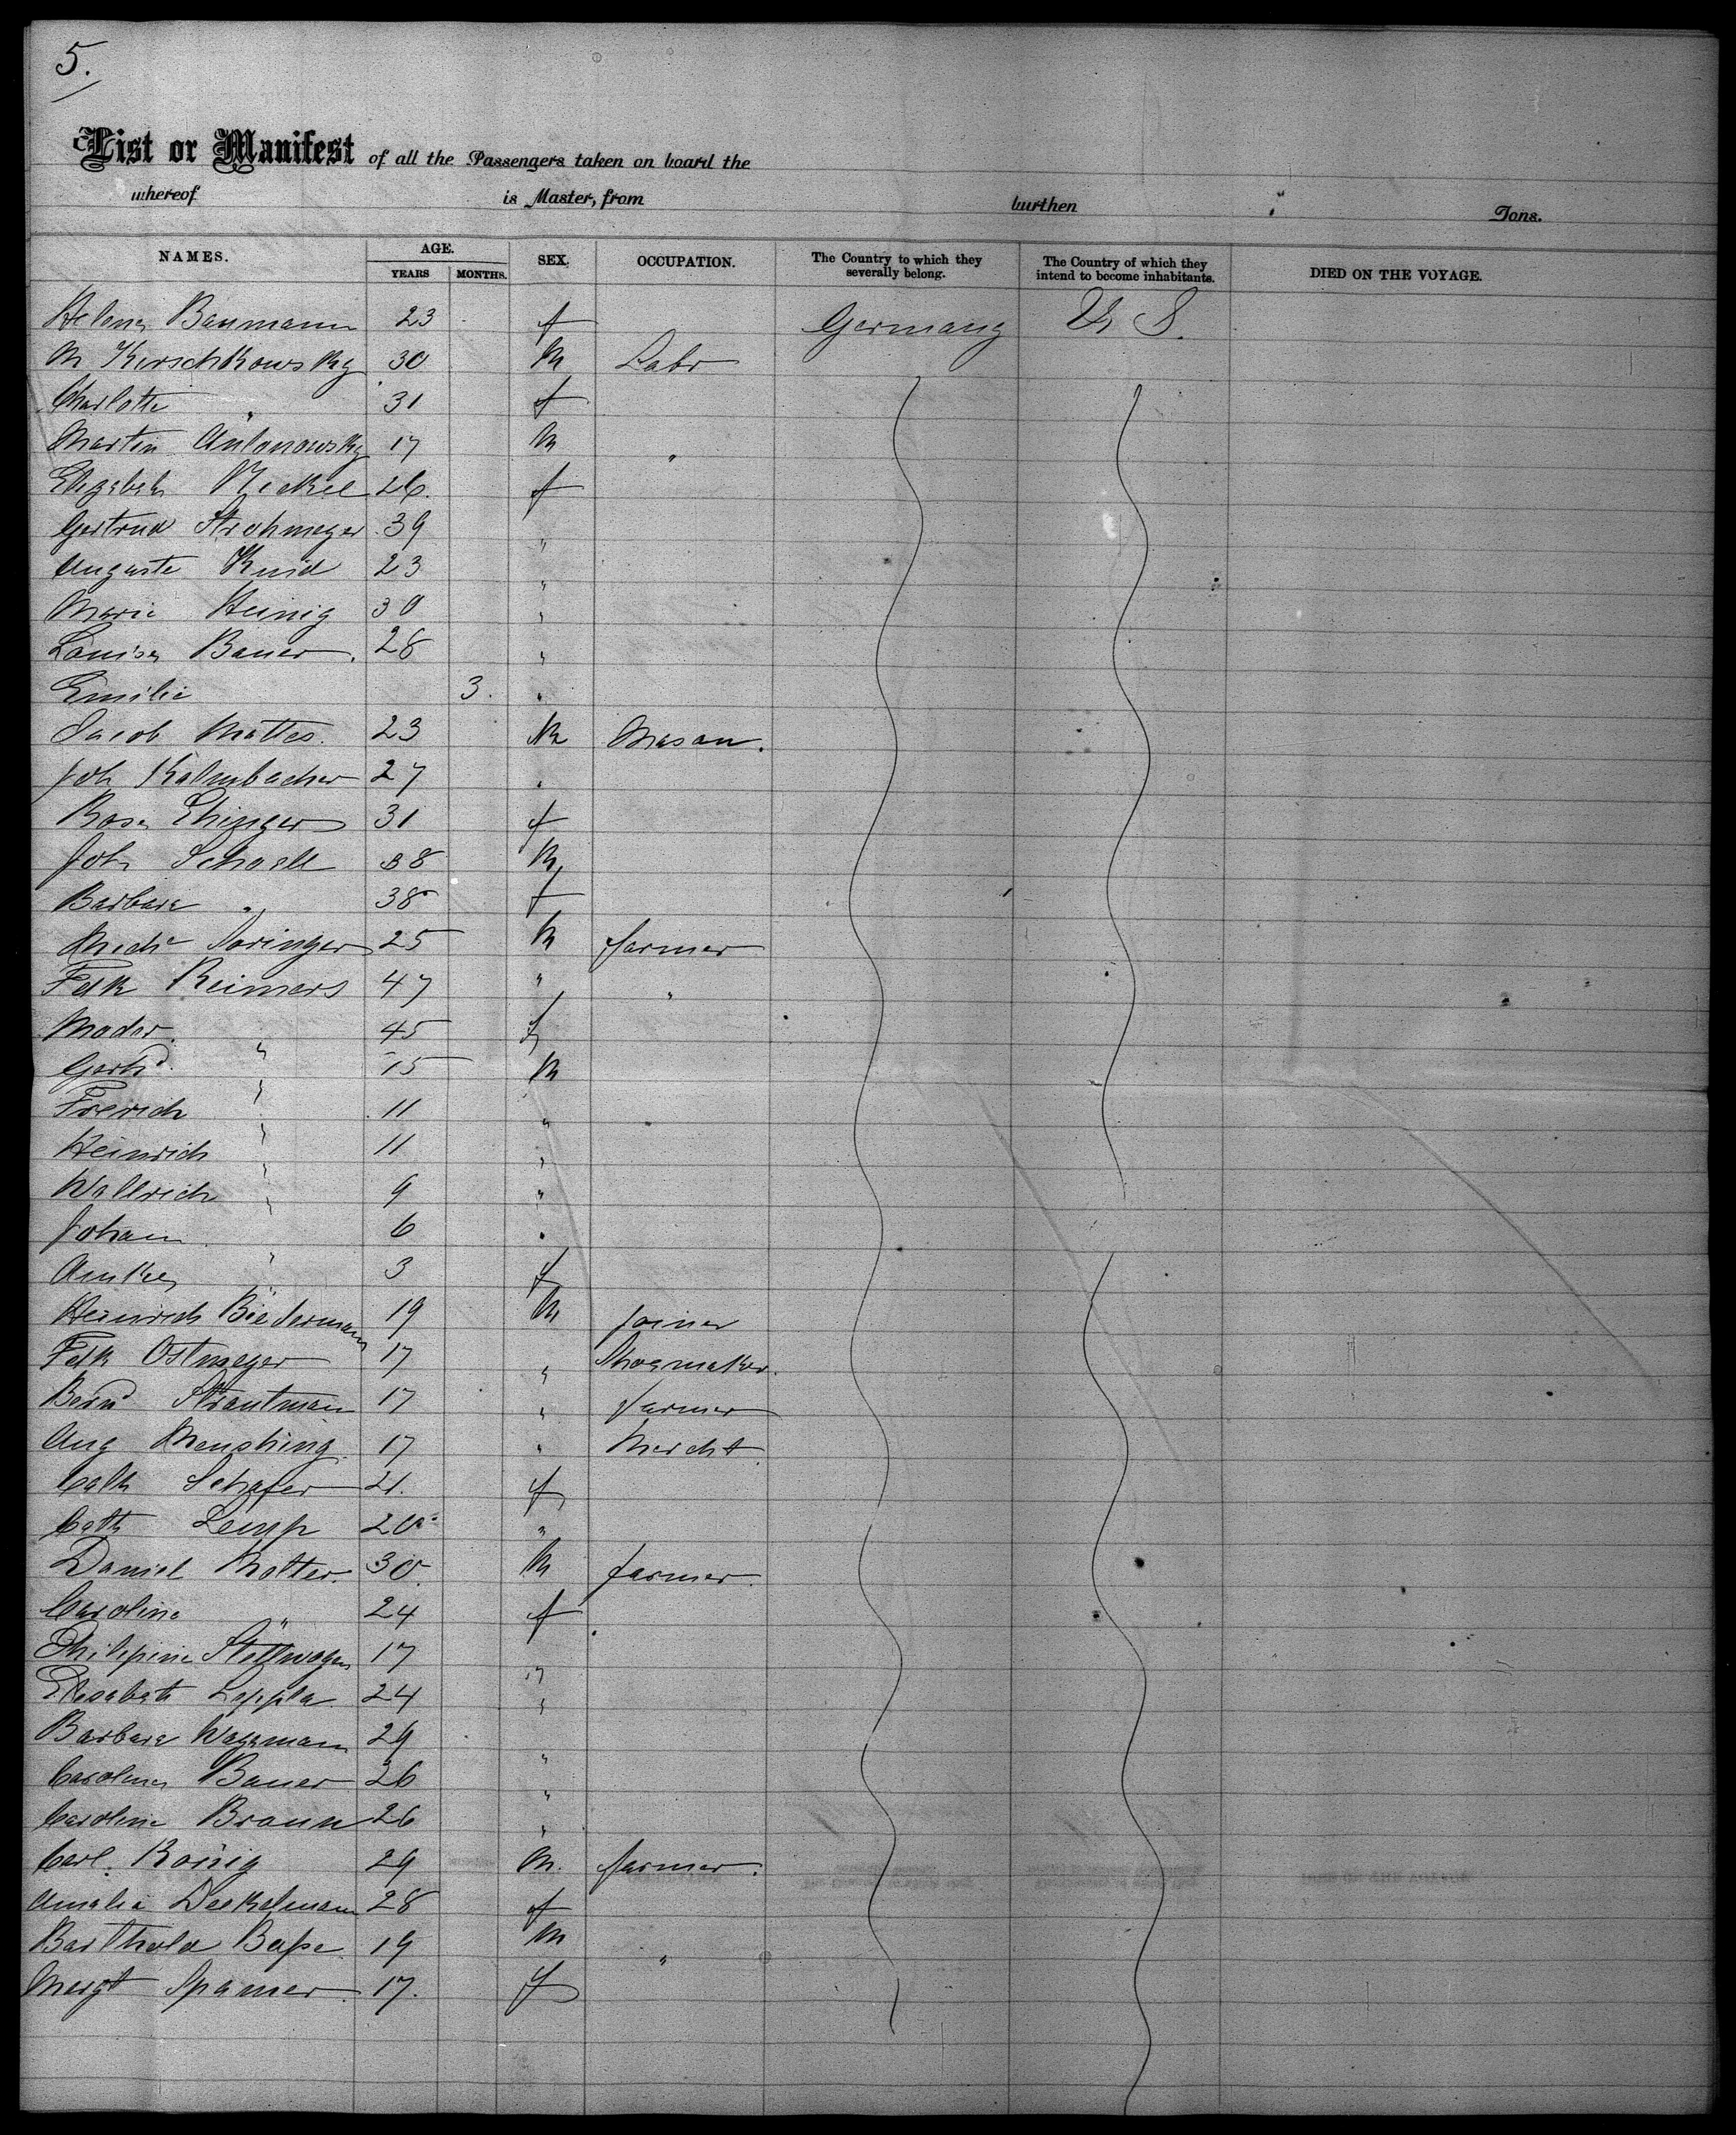 5.
List or Manifest of all the Passengers taken on board the
whereof is Master, from burthen Tons.
NAMES. AGE. YEARS MONTHS. SEX. OCCUPATION. The Country to which they severally belong. The Country of which they intend to become inhabitants. DIED ON THE VOYAGE.
Helena Baumann 23 f Germany U S.
M Kerschkowsky 30 M Labr
Charlotte " 31 f
Martin Antonowsky 17 M "
Elizabeth Nickel 26. f
Gertrud Strohmeyer 39 "
Auguste Kund 23 "
Marie Heinig 30 "
Louisa Bauer. 28 "
Emilie 3. "
Jacob Mattes. 23 M Mason.
Joh Kalmbacher 27 "
Rosa Ehinger 31 f
Joh Schoell 38 M
Barbara " 38 f
Michl Doringer 25 M farmer
Fdk Reimers 47 " "
Moder. " 45 f
Gerhd " 15 M
Frerich " 11 "
Heinrich " 11 "
Wallrich " 9 "
Johann " 6 "
Anke " 3 f
Heinrich Biedermann 19 M Joiner
Fdk Ostmeyer 17 " Shoemaker.
Bernd Strautman 17 " farmer
Aug Menshing 17 " Mercht
Cath Schafer 21. f
Cath Lemp 20 "
Daniel Molter. 30. M farmer.
Caroline " 24 f
Philipine Stellwagen 17 "
Elisabeth Leppla 24 "
Barbara Wagemann 29 "
Carolina Bauer 26 "
Caroline Braun 26 "
Carl. König 29 M. farmer.
Amalia Deekelmann 28 f
Barthold Basse 19 M "
Margt Spamer. 17. f